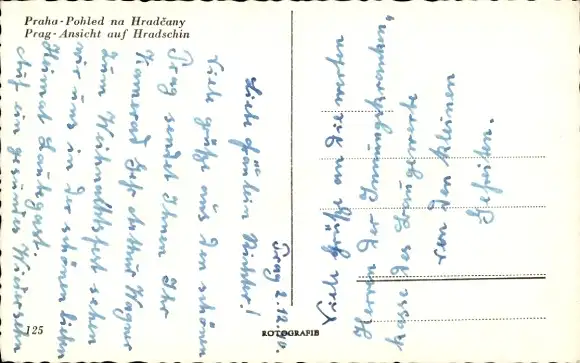 Praha - Pohled na Hradčany
Prag - Ansicht auf Hradschin
Prag 2.12.40.
Lieb Fräulein Richter!
Viele Grüße aus den schönen
Prag sendet Ihnen Ihr
Kamerad Gefr. Arthur Wagner
Zum Weihnachtsfest sehen
wir uns in der schönen lieben
Heimat Stuttgart.
Auf ein gesundes Wiedersehn
Viele Grüße an die werten
Herren der Innungskranken,
kasse des Baugewerbe
von den kleinen
Gefreiten.
125
ROTOGRAFIE